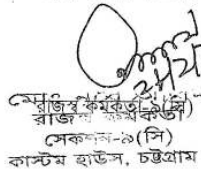 রাজস্ব কর্মকর্তা-৯(সি)
রাজস্ব কর্মকর্তা
সেকশন-৯(সি)
কাস্টম হাউস, চট্টগ্রাম